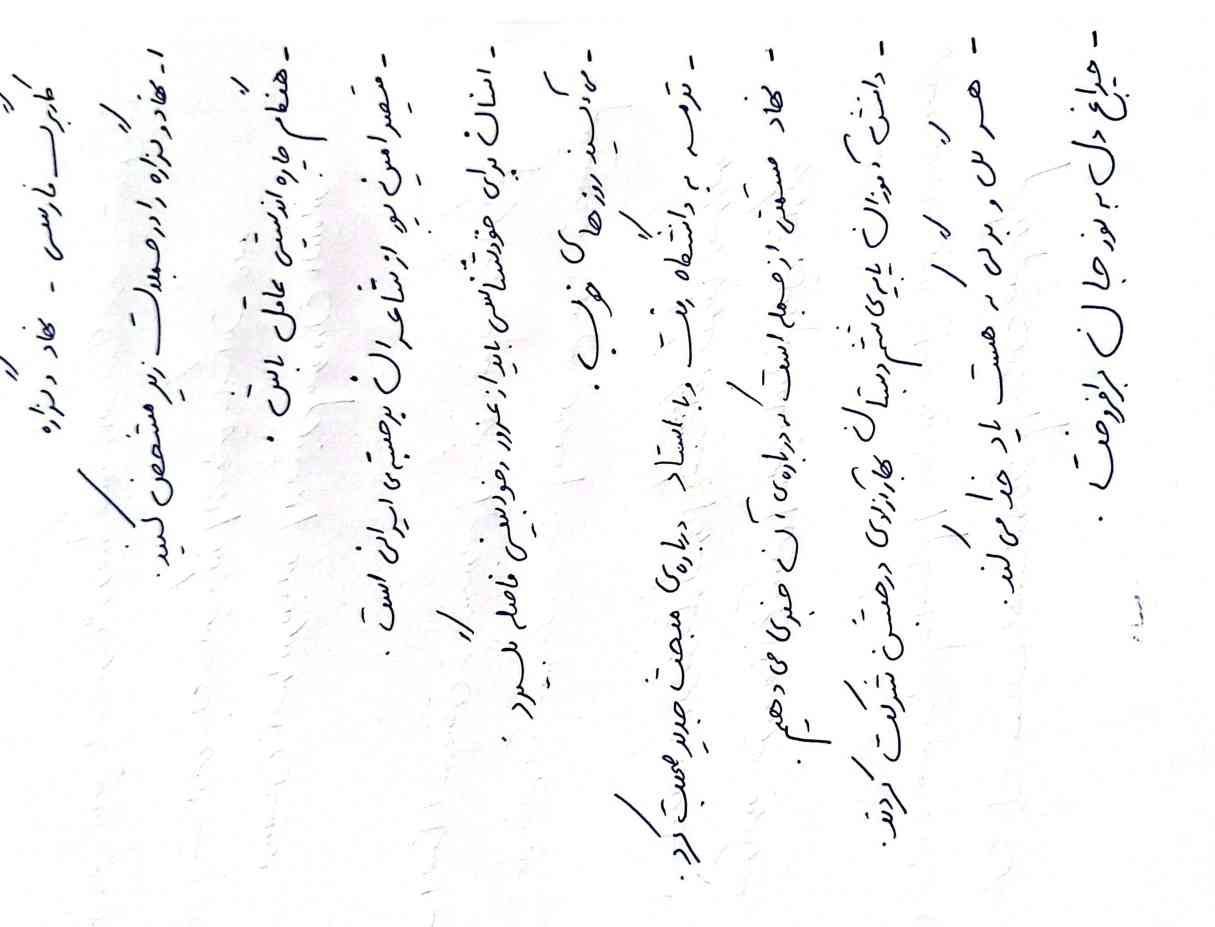 کاربرگ فارسی - نهاد و گزاره
۱- نهاد و گزاره را در جملات زیر مشخص کنید.
- هنگام چاره اندیشی عاقل باش.
- قیصر امین پور از شاعران برجسته‌ی ایرانی است.
- انسان برای خودشناسی باید از غرور و خودبینی فاصله بگیرد.
- می‌آیند روزهای خوب.
- به دانشگاه رفت و با استاد درباره‌ی مبحث جدید صحبت کرد.
- نهاد قسمتی از جمله است که درباره‌ی آن خبری می‌دهیم.
- دانش آموزان پایه‌ی ششم دبستان بهارآزادی در جشن شرکت کردند.
- هر گل و برگی که هست یاد خدا می‌کند.
- چراغ دل به نور جان برافروخت.